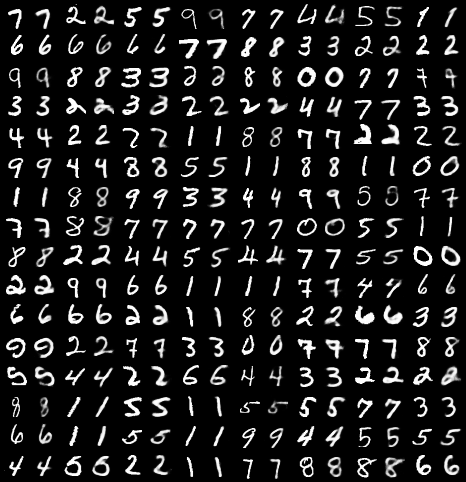 7 7 2 2 5 5 9 9 7 7 4 4 5 5 1 1
6 6 6 6 6 6 7 7 8 8 3 3 2 2 2 2
9 9 8 8 3 3 2 2 8 8 0 0 7 7 4 4
3 3 2 2 3 3 2 2 2 2 4 4 7 7 3 3
4 4 2 2 7 7 1 1 8 8 7 7 2 2 2 2
9 9 4 4 8 8 5 5 1 1 8 8 1 1 0 0
1 1 8 8 9 9 3 3 4 4 9 9 5 5 7 7
7 7 8 8 7 7 7 7 7 7 0 0 5 5 1 1
8 8 2 2 4 4 5 5 4 4 7 7 5 5 0 0
2 2 9 9 6 6 1 1 1 1 7 7 4 4 6 6
6 6 6 6 2 2 1 1 8 8 2 2 6 6 3 3
9 9 2 2 7 7 3 3 0 0 9 9 7 7 8 8
5 5 4 4 2 2 6 6 4 4 3 3 2 2 2 2
8 8 1 1 5 5 1 1 5 5 5 5 7 7 3 3
6 6 1 1 5 5 1 1 9 9 4 4 5 5 5 5
4 4 5 5 2 2 1 1 7 7 8 8 8 8 6 6